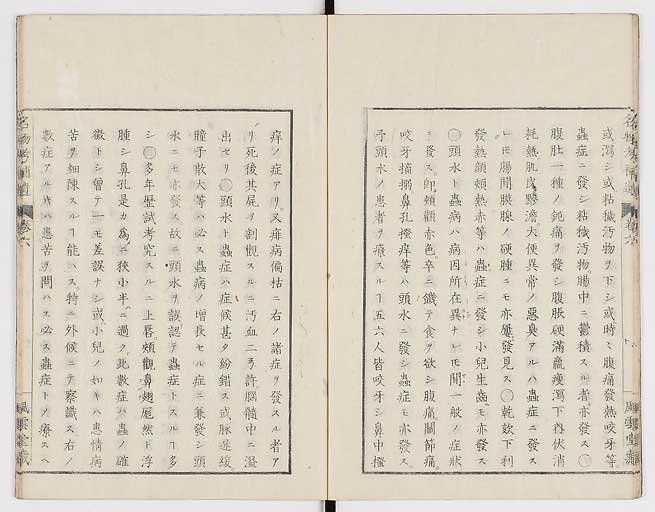 或瀉シ或粘稠汚物ヲ下シ或時々腹痛發熱咬牙等
蟲症ニ發シ粘稠汚物腸中ニ鬱積スル者亦發ス〇
腹肚一種ノ鈍痛ヲ發シ腹脹硬滿羸瘦瀉下
耗熱肌皮黲澹大便異常ノ惡臭アルハ蟲症ニ發ス
レモ腸間膜腺ノ硬腫ニモ亦屢發見ス〇乾欬下利
發熱顏頰熱赤等ハ蟲症ニ發シ小兒生齒ニモ亦發ス
〇頭水ト蟲病ハ病因所在異ナレモ間一般ノ症狀
ヲ發ス卽頰顴赤色卒ニ饑テ食ヲ欲シ腹痛關節痛
咬牙搐搦鼻孔搔痒等ハ頭水ニ發シ蟲症モ亦發ス
予頭水ノ患者ヲ療スルヿ五六人皆咬牙シ鼻中搔
痒ノ症アリ又痱病偏枯ニ右ノ諸症ヲ發スル者ア
リ死後其屍ヲ割觀スルニ汚血二弓許腦髓中ニ溢
出セリ〇頭水ト蟲症ハ症候甚タ紛錯ス或脉遲緩
瞳子散大等ハ必ス蟲病ノ增長セル症ニ兼發シ頭
水ニモ亦發ス故ニ頭水ヲ誤認テ蟲症トスルヿ多
シ〇多年歷試考究スルニ上唇頰觀鼻翅尨然ト浮
腫シ鼻孔是カ爲ニ狹小半ニ過ク此數症ハ蟲ノ確
徵トシ曾テ一モ差誤ナシ或小兒ノ如キハ患情病
苦ヲ細陳スルヿ能ハス特ニ外候ニテ察識ス右ノ
數症アルハ患苦ヲ問ハス必ス蟲症トシ療スヘ